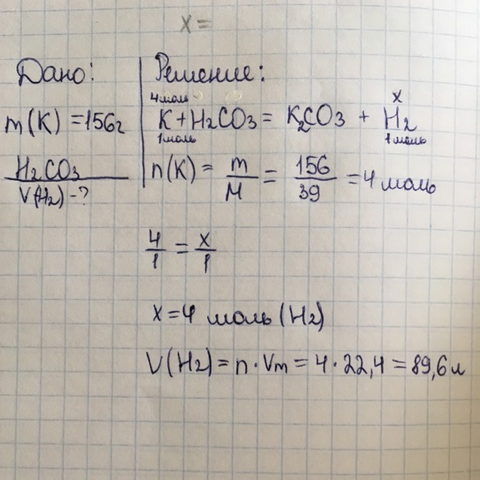 x =
Дано:
m(K) = 156г
H2CO3
V(H2) - ?
Решение:
4моль x
K + H2CO3 = K2CO3 + H2
1моль 1моль
n(K) = m/M = 156/39 = 4 моль
4/1 = x/1
x = 4 моль (H2)
V(H2) = n · Vm = 4 · 22,4 = 89,6 л